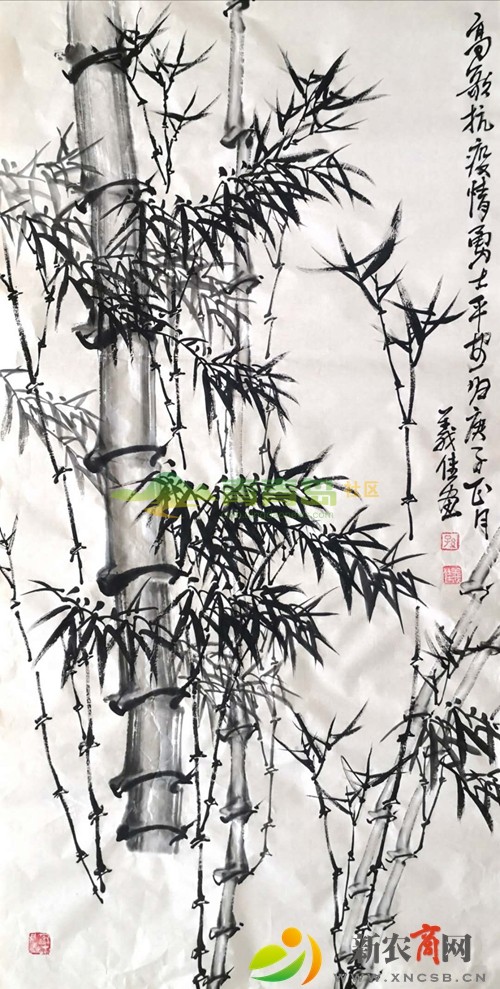 高歌抗疫情勇士平安归庚子正月
義佳画
社区
新农商网
WWW.XNCSB.CN